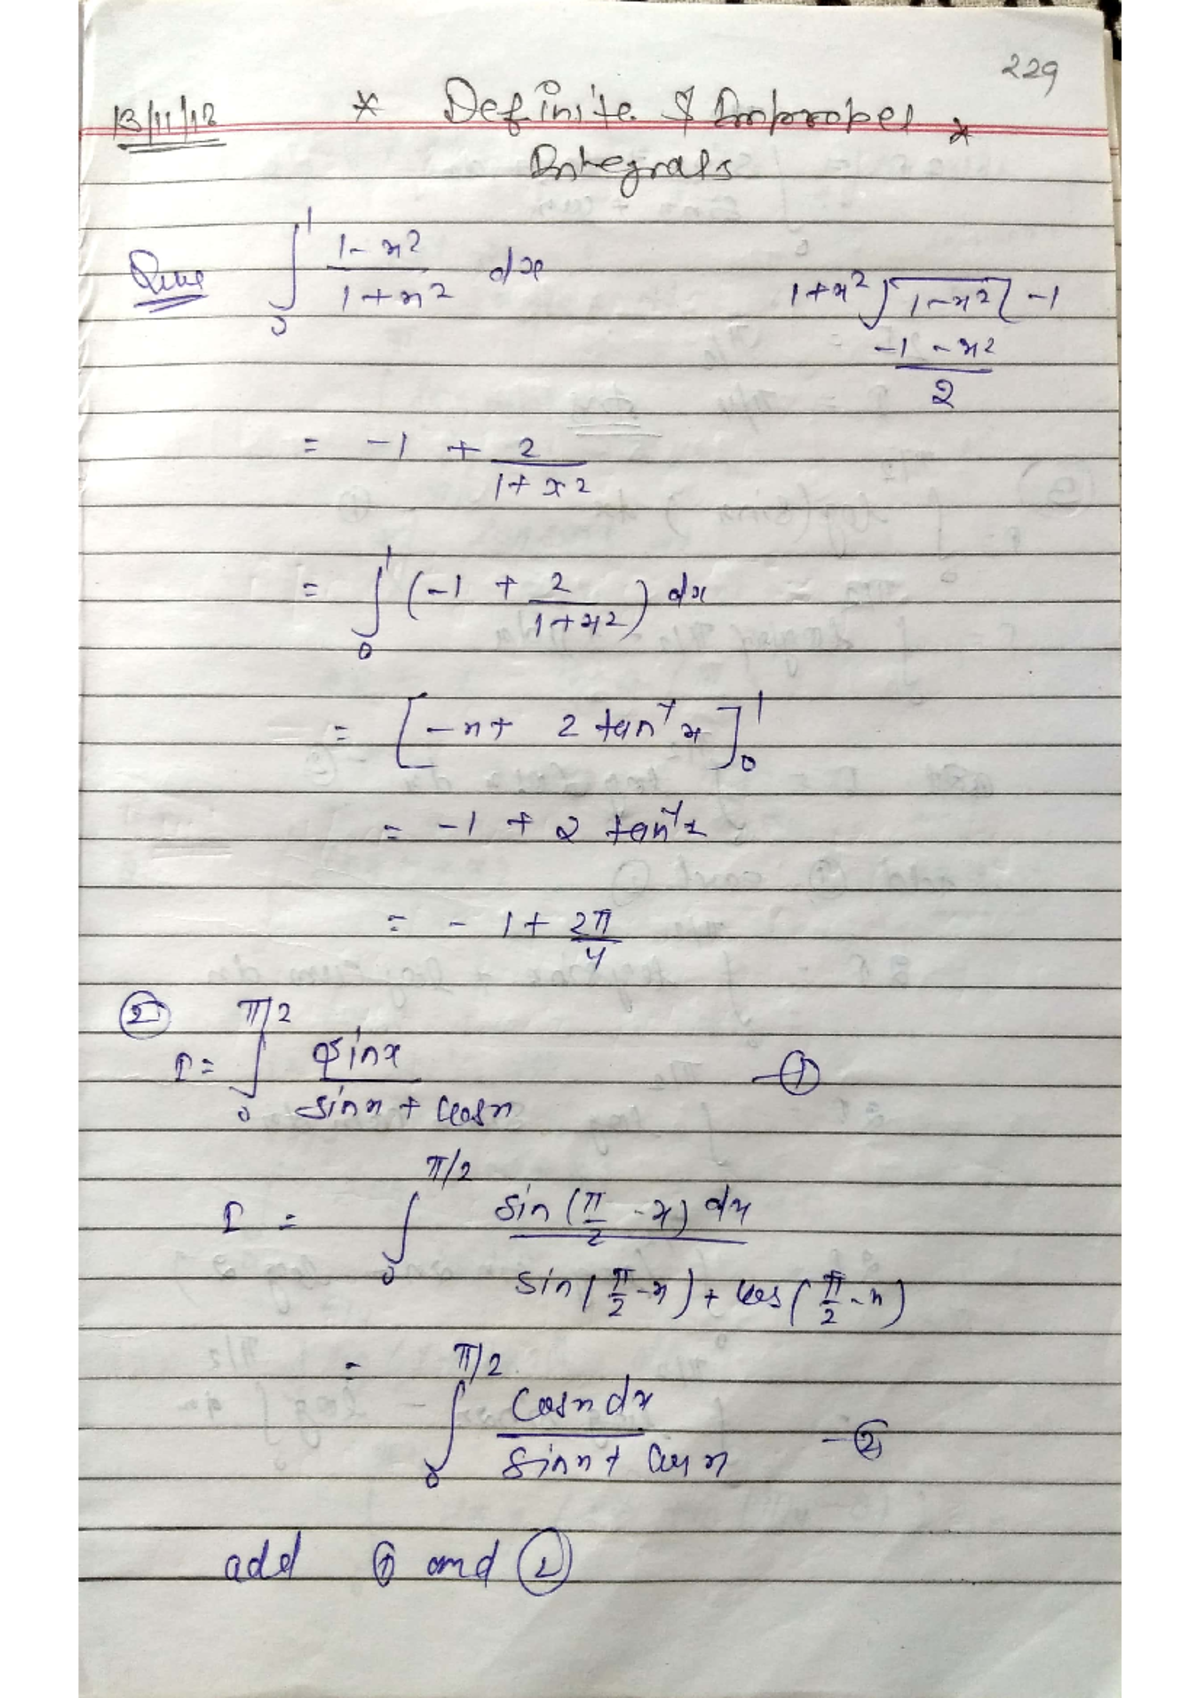 229
13/11/18 * Definite & Improper *
Integrals
Ques ∫₀¹ (1-x²)/(1+x²) dx
1+x² ) 1-x² ( -1
-1 - x²
2
= -1 + 2/(1+x²)
= ∫₀¹ (-1 + 2/(1+x²)) dx
= [-x + 2 tan⁻¹ x]₀¹
= -1 + 2 tan⁻¹x
= - 1 + 2π/4
② I = ∫₀^(π/2) sinx/(sinx + cosx) —①
I = ∫₀^(π/2) sin(π/2 - x) dx/(sin(π/2 - x) + cos(π/2 - x))
= ∫₀^(π/2) cosx dx/(sinx + cosx) -②
add ① and ②